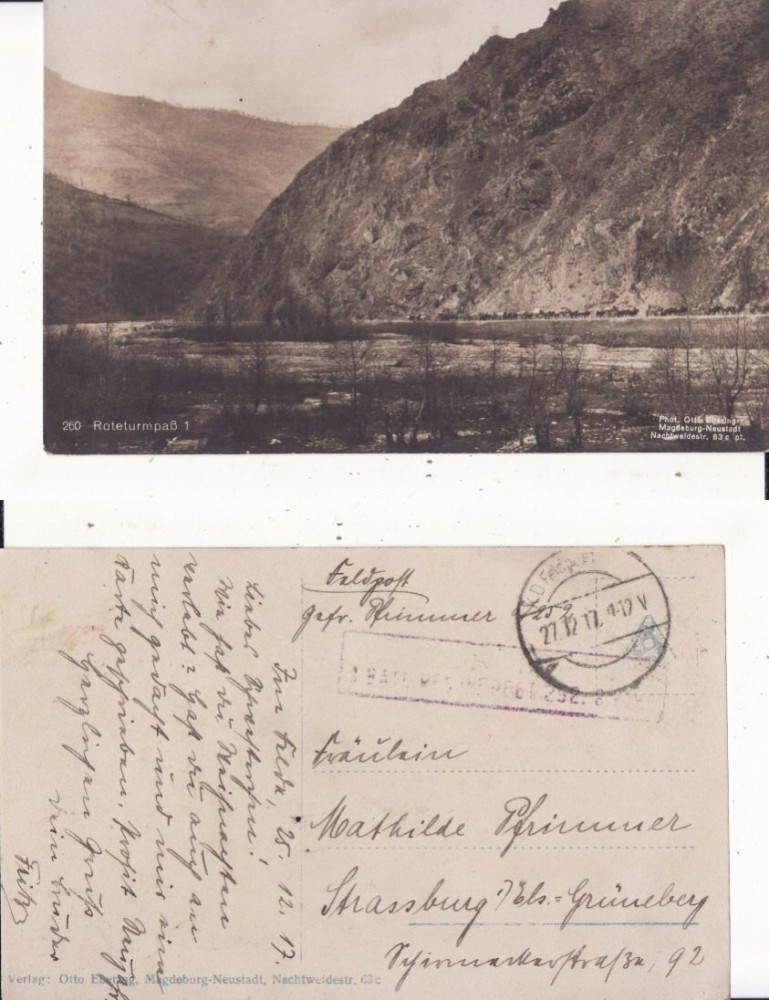 260 Roteturmpaß 1
Phot. Otto Ebering-
Magdeburg-Neustadt
Nachtweidestr. 63 c pt.
Feldpost
Gefr. Pfrimmer
K.D. Feldpost
27.12.17. 9-12 V
252.
Fräulein
Mathilde Pfrimmer
Strassburg i/Els.-Grüneberg
Schirmeckerstraße, 92
Im Felde, 25. 12. 17.
Liebes Schwesterchen!
Wie hast du Weihnachten
verlebt? Hast du auch an
mich gedacht und mir eine
Karte geschrieben. Prosit Neujahr
Herzlichen Gruß
Dein Bruder
Fritz
Verlag: Otto Ebering, Magdeburg-Neustadt, Nachtweidestr. 63c